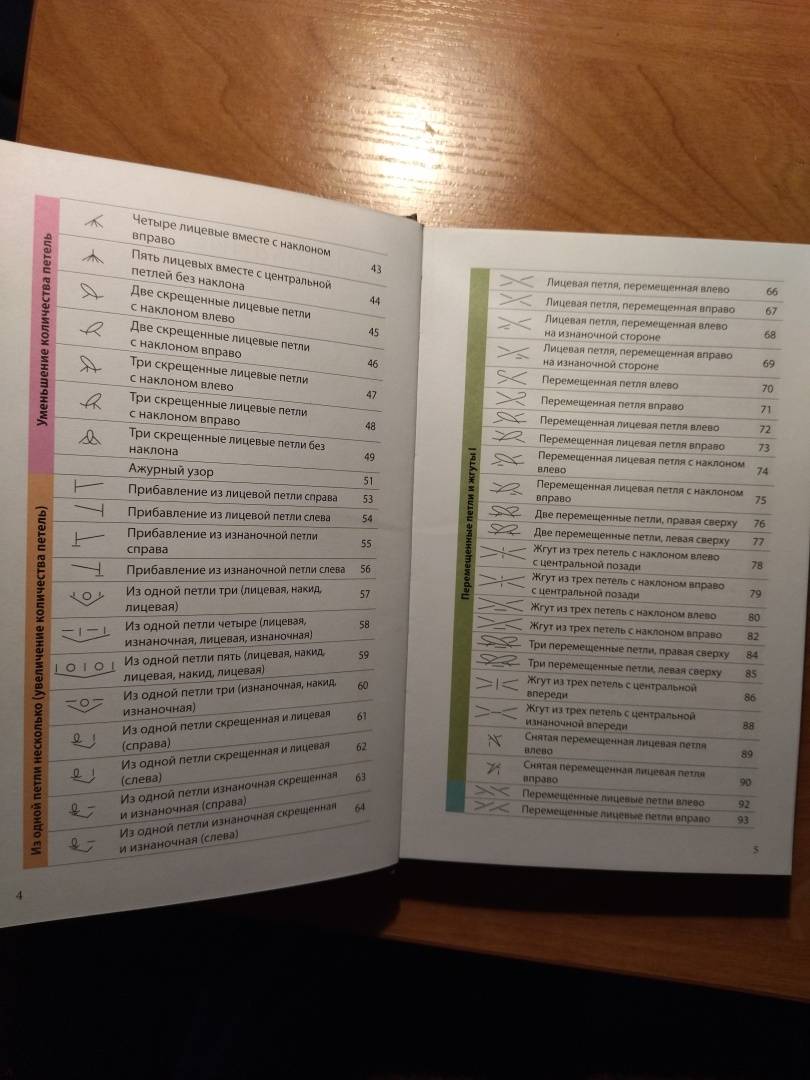 Уменьшение количества петель
Четыре лицевые вместе с наклоном
вправо 43
Пять лицевых вместе с центральной
петлей без наклона 44
Две скрещенные лицевые петли
с наклоном влево 45
Две скрещенные лицевые петли
с наклоном вправо 46
Три скрещенные лицевые петли
с наклоном влево 47
Три скрещенные лицевые петли
с наклоном вправо 48
Три скрещенные лицевые петли без
наклона 49
Ажурный узор 51
Из одной петли несколько (увеличение количества петель)
Прибавление из лицевой петли справа 53
Прибавление из лицевой петли слева 54
Прибавление из изнаночной петли
справа 55
Прибавление из изнаночной петли слева 56
Из одной петли три (лицевая, накид,
лицевая) 57
Из одной петли четыре (лицевая,
изнаночная, лицевая, изнаночная) 58
Из одной петли пять (лицевая, накид,
лицевая, накид, лицевая) 59
Из одной петли три (изнаночная, накид,
изнаночная) 60
Из одной петли скрещенная и лицевая
(справа) 61
Из одной петли скрещенная и лицевая
(слева) 62
Из одной петли изнаночная скрещенная
и изнаночная (справа) 63
Из одной петли изнаночная скрещенная
и изнаночная (слева) 64
4
Перемещенные петли и жгуты I
Лицевая петля, перемещенная влево 66
Лицевая петля, перемещенная вправо 67
Лицевая петля, перемещенная влево
на изнаночной стороне 68
Лицевая петля, перемещенная вправо
на изнаночной стороне 69
Перемещенная петля влево 70
Перемещенная петля вправо 71
Перемещенная лицевая петля влево 72
Перемещенная лицевая петля вправо 73
Перемещенная лицевая петля с наклоном
влево 74
Перемещенная лицевая петля с наклоном
вправо 75
Две перемещенные петли, правая сверху 76
Две перемещенные петли, левая сверху 77
Жгут из трех петель с наклоном влево
с центральной позади 78
Жгут из трех петель с наклоном вправо
с центральной позади 79
Жгут из трех петель с наклоном влево 80
Жгут из трех петель с наклоном вправо 82
Три перемещенные петли, правая сверху 84
Три перемещенные петли, левая сверху 85
Жгут из трех петель с центральной
впереди 86
Жгут из трех петель с центральной
изнаночной впереди 88
Снятая перемещенная лицевая петля
влево 89
Снятая перемещенная лицевая петля
вправо 90
Перемещенные лицевые петли влево 92
Перемещенные лицевые петли вправо 93
5